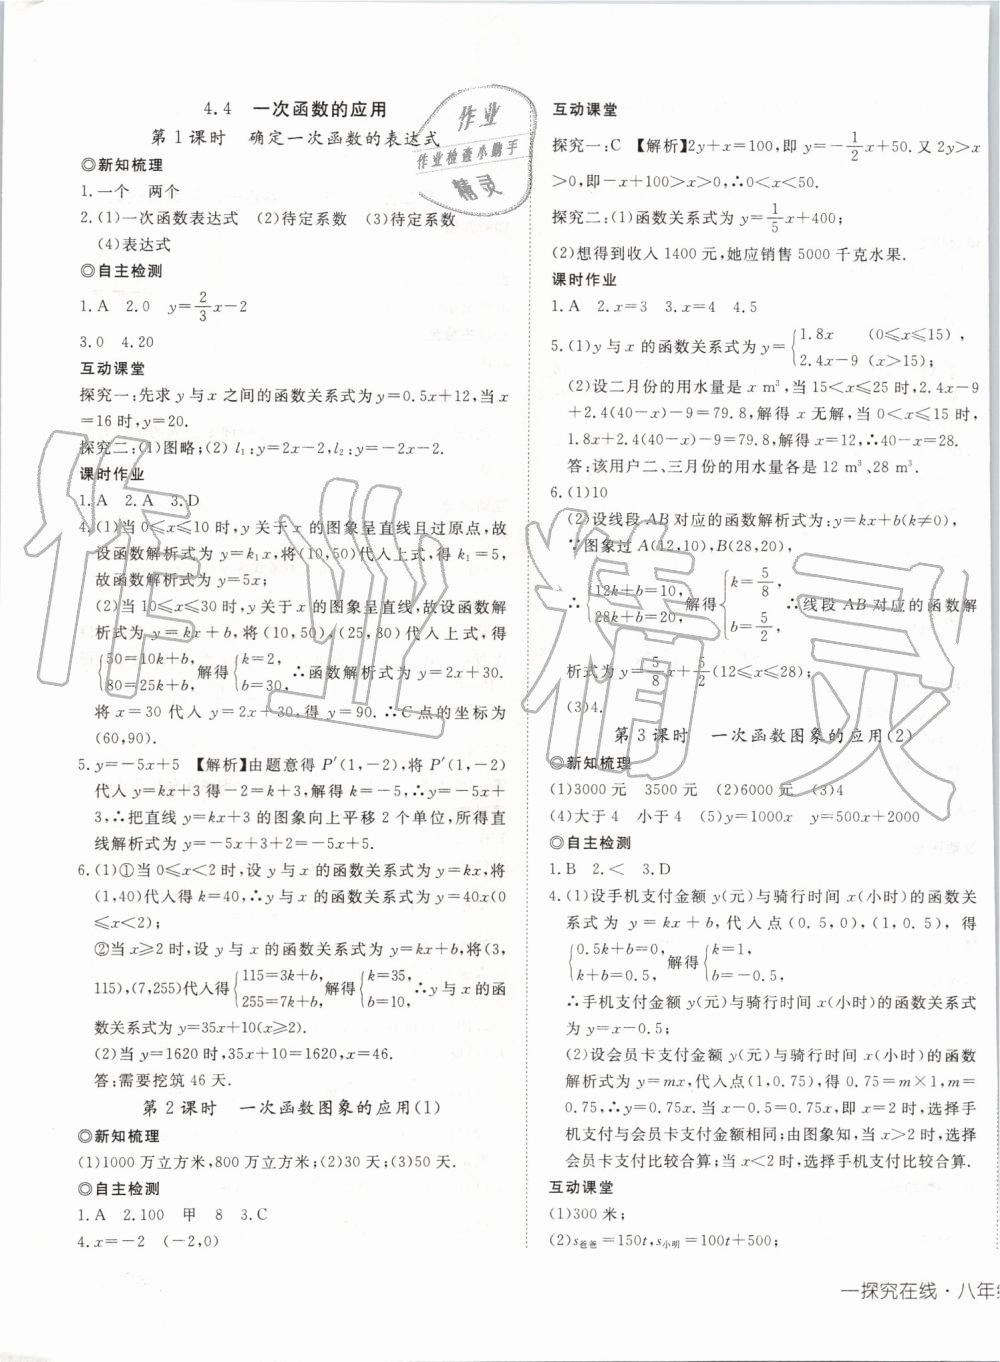 4.4 一次函数的应用
第1课时 确定一次函数的表达式
◎新知梳理
1.一个 两个
2.(1)一次函数表达式 (2)待定系数 (3)待定系数
(4)表达式
◎自主检测
1.A 2.0 y=2/3x-2
3.0 4.20
互动课堂
探究一:先求 y 与 x 之间的函数关系式为 y=0.5x+12,当 x
=16时,y=20.
探究二:(1)图略;(2) l₁:y=2x-2,l₂:y=-2x-2.
课时作业
1.A 2.A 3.D
4.(1)当 0≤x≤10时,y 关于 x 的图象呈直线且过原点,故
设函数解析式为 y=k₁x,将(10,50)代入上式,得 k₁=5,
故函数解析式为 y=5x;
(2)当 10≤x≤30时,y 关于 x 的图象呈直线,故设函数解
析式为 y=kx+b,将(10,50),(25,80)代入上式,得
{50=10k+b, 80=25k+b, 解得{k=2, b=30. ∴函数解析式为 y=2x+30.
将 x=30代入 y=2x+30,得 y=90.∴C 点的坐标为
(60,90).
5.y=-5x+5 【解析】由题意得 P′(1,-2),将 P′(1,-2)
代入 y=kx+3得-2=k+3,解得 k=-5,∴y=-5x
+3,∴把直线 y=kx+3的图象向上平移2个单位,所得直
线解析式为 y=-5x+3+2=-5x+5.
6.(1)①当 0≤x<2时,设 y 与 x 的函数关系式为 y=kx,将
(1,40)代入得 k=40,∴y 与 x 的函数关系式为 y=40x(0
≤x<2);
②当 x≥2时,设 y 与 x 的函数关系式为 y=kx+b,将(3,
115),(7,255)代入得{115=3k+b, 255=7k+b, 解得{k=35, b=10. ∴y 与 x 的函
数关系式为 y=35x+10(x≥2).
(2)当 y=1620时,35x+10=1620,x=46.
答:需要挖筑46天.
第2课时 一次函数图象的应用(1)
◎新知梳理
(1)1000万立方米,800万立方米;(2)30天;(3)50天.
◎自主检测
1.A 2.100 甲 8 3.C
4.x=-2 (-2,0)
互动课堂
探究一:C 【解析】2y+x=100,即 y=-1/2x+50.又 2y>x
>0,即-x+100>x>0,∴0<x<50.
探究二:(1)函数关系式为 y=1/5x+400;
(2)想得到收入1400元,她应销售5000千克水果.
课时作业
1.A 2.x=3 3.x=4 4.5
5.(1)y 与 x 的函数关系式为 y={1.8x (0≤x≤15), 2.4x-9 (x>15);
(2)设二月份的用水量是 x m³,当 15<x≤25时,2.4x-9
+2.4(40-x)-9=79.8,解得 x 无解,当 0<x≤15时,
1.8x+2.4(40-x)-9=79.8,解得 x=12,∴40-x=28.
答:该用户二、三月份的用水量各是 12 m³、28 m³.
6.(1)10
(2)设线段 AB 对应的函数解析式为:y=kx+b(k≠0),
∵图象过 A(12,10),B(28,20),
∴{12k+b=10, 28k+b=20, 解得{k=5/8, b=5/2, ∴线段 AB 对应的函数解
析式为 y=5/8x+5/2(12≤x≤28);
(3)4.
第3课时 一次函数图象的应用(2)
◎新知梳理
(1)3000元 3500元 (2)6000元 (3)4
(4)大于4 小于4 (5)y=1000x y=500x+2000
◎自主检测
1.B 2.< 3.D
4.(1)设手机支付金额 y(元)与骑行时间 x(小时)的函数关
系式为 y=kx+b,代入点(0.5,0),(1,0.5),得
{0.5k+b=0, k+b=0.5, 解得{k=1, b=-0.5.
∴手机支付金额 y(元)与骑行时间 x(小时)的函数关系式
为 y=x-0.5;
(2)设会员卡支付金额 y(元)与骑行时间 x(小时)的函数
解析式为 y=mx,代入点(1,0.75),得 0.75=m×1,m=
0.75,∴y=0.75x.当 x-0.5=0.75x,即 x=2时,选择手
机支付与会员卡支付金额相同;由图象可知,当 x>2时,选择
会员卡支付比较合算;当 x<2时,选择手机支付比较合算.
互动课堂
(1)300米;
(2)s爸爸=150t,s小明=100t+500;
一探究在线·八年级
作业
作业检查小助手
精灵
作业精灵